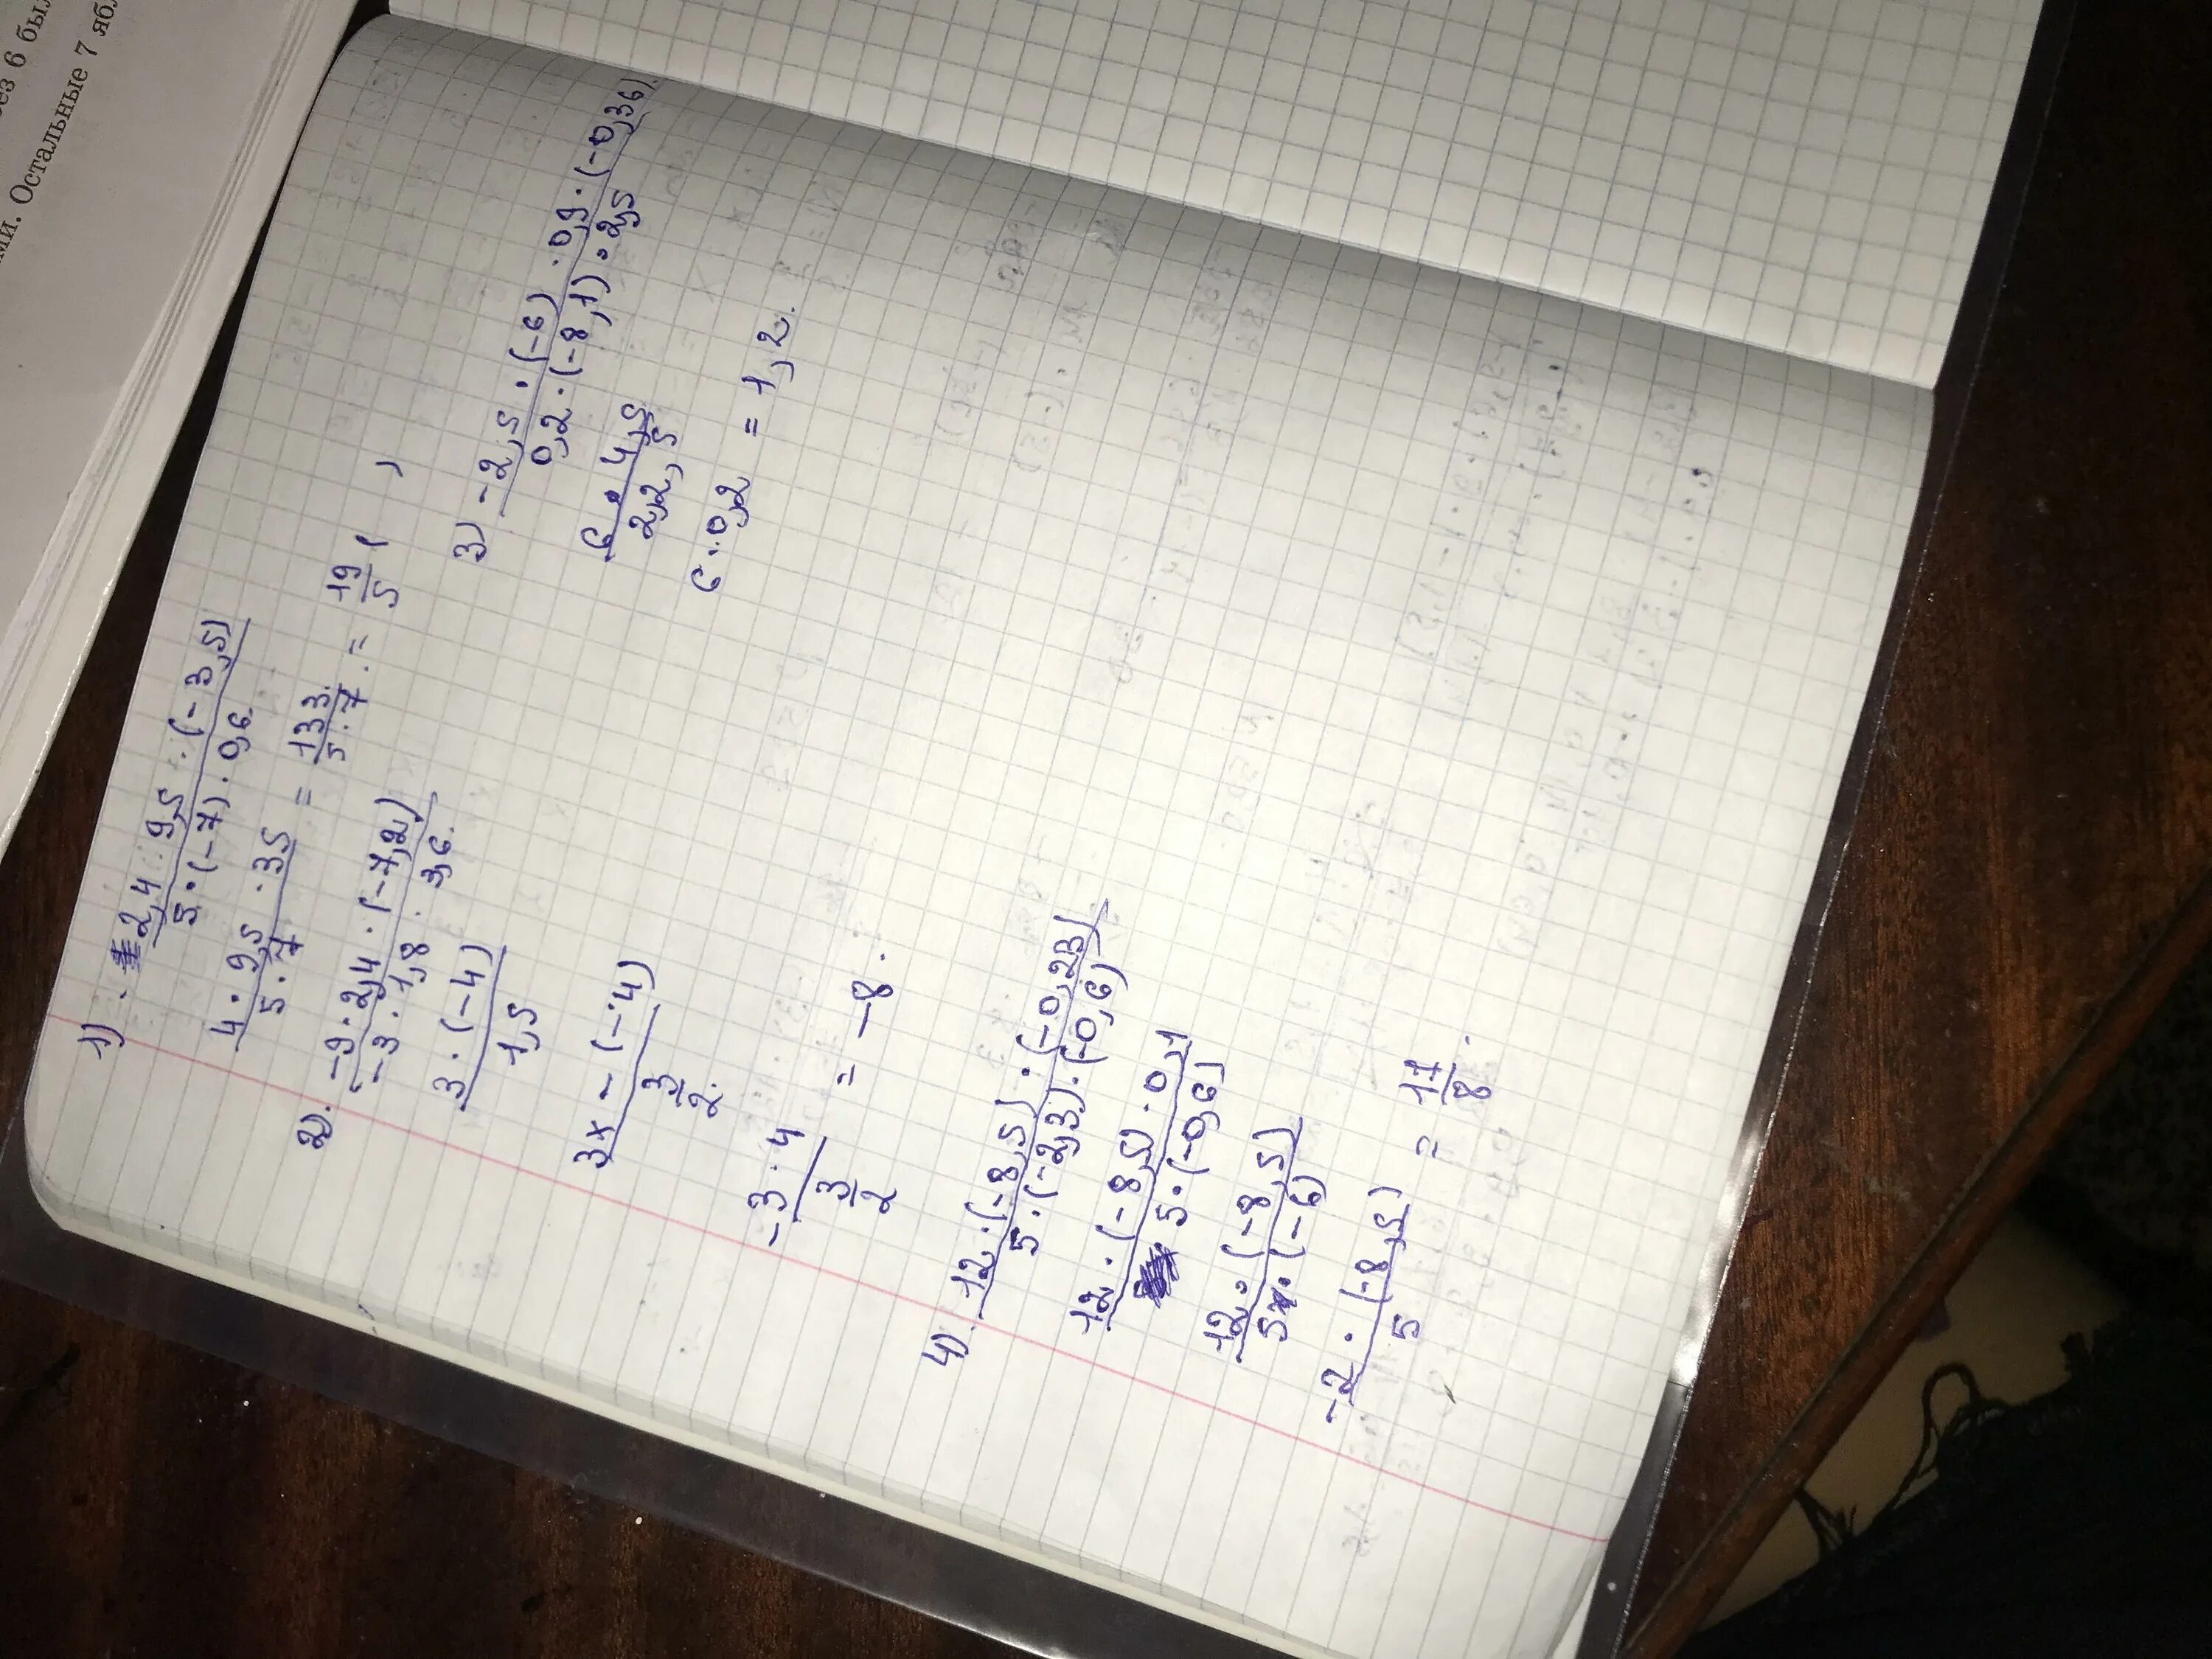 ез 6 был
ми. Остальные 7 ябл
1) 2,4 · 9,5 · (-3,5)
5 · (-7) · 0,6
4 · 9,5 · 3,5
5 · 7
= 133
5 · 7
= 19
5
2) -9 · 2,4 · (-7,2)
-3 · 1,8 · 3,6
3 · (-4)
1,5
3 × - (-4)
3
2
-3 · 4
3
2
= -8.
3) -2,5 · (-6) · 0,9 · (-0,36)
0,2 · (-8,1) · 2,5
6 · 4,5
22,5
6 · 0,2 = 1,2.
4) 12 · (-8,5) · (-0,23)
5 · (-2,3) · (-0,6)
12 · (-8,5) · 0,1
5 · (-0,6)
12 · (-8,5)
5 · (-6)
-2 · (-8,5)
5
= 17
8